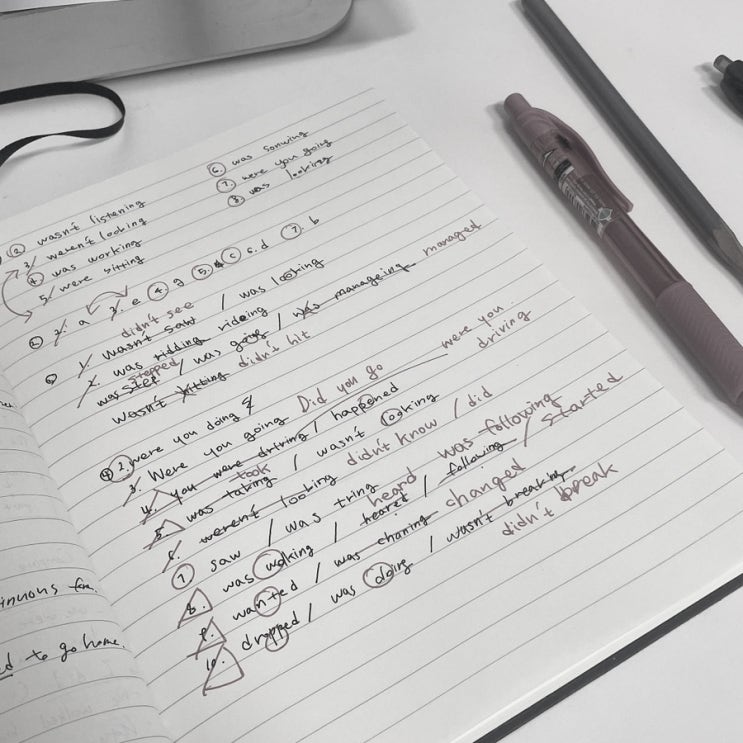 6. was sonwing
7. were you going
8. was looking
2. wasn't listening
3. weren't looking
4. was working
5. were sitting
2. a 3. e 4 g 5. c c.d 7. b
didn't see
1. wasn't saw / was looking
2. was ridding rideing
stepped managed
was step / was going / was manageing
wasn't hitting didn't hit
were you driving
2. were you doing
3. Were you going Did you go
4. you were driving / happened
took
5. was taking / wasn't looking
6. weren't looking didn't know / did
7. saw / was tring
heard was following
8. was walking / heared / following / started
9. wanted / was chaning changed
10. dropped / was doing / wasn't breaking
didn't break
inuous
to go home.